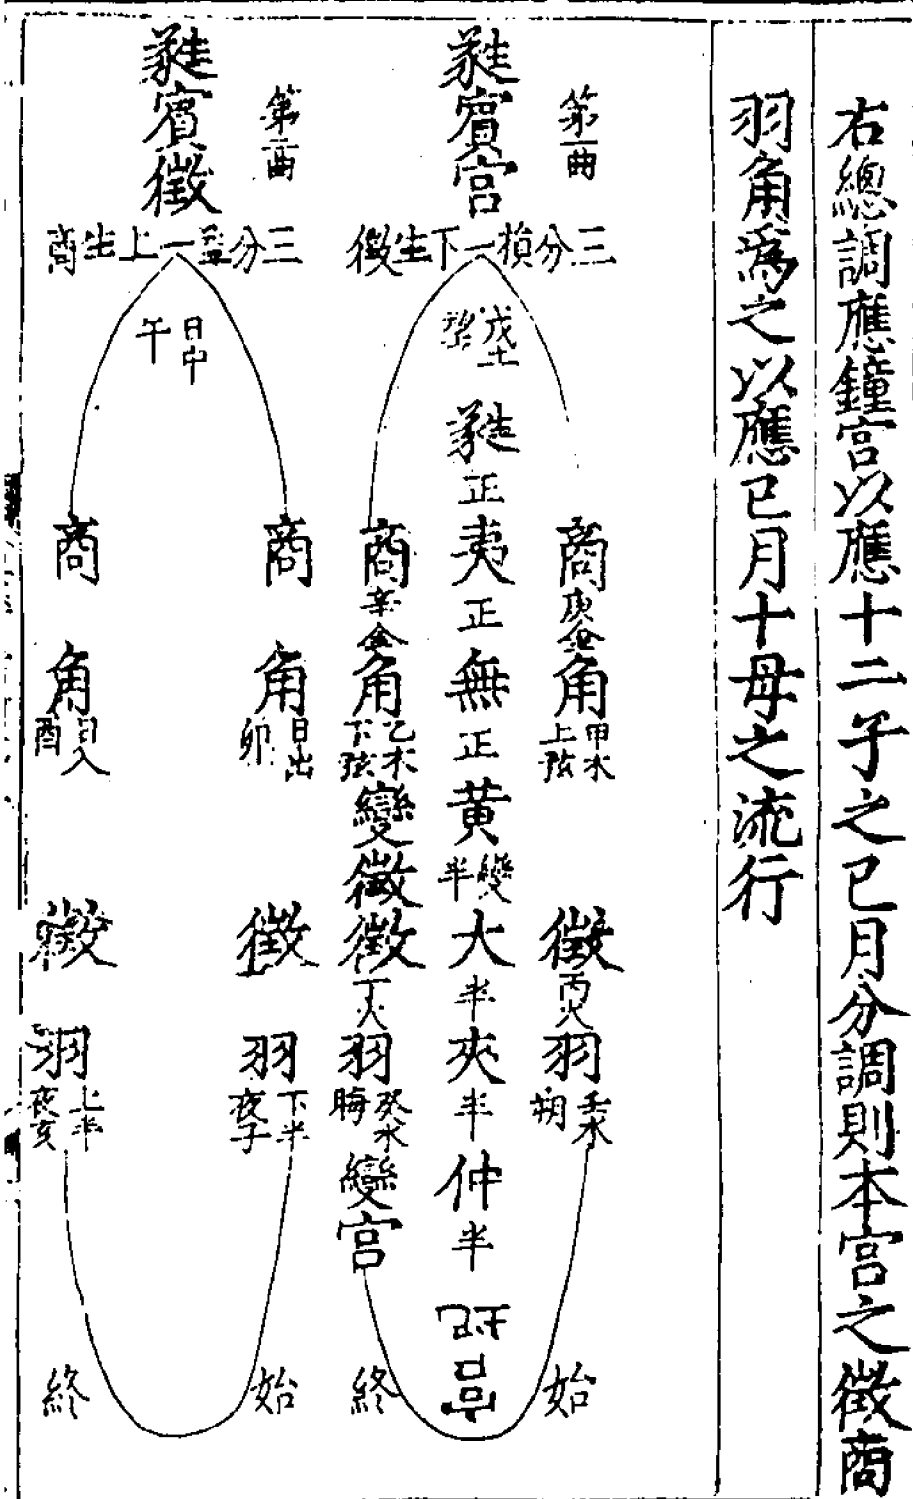 右總調應鐘宮以應十二子之巳月分調則本宮之徵商
羽角為之以應巳月十母之流行
第一曲
蕤賓宮
三分損一下生徵
戊土
望
蕤正夷正無正黃變半大半夾半仲半
商庚金角甲木上弦
徵丙火羽壬水朔
始
商辛金角乙木下弦變徵徵丁火羽癸水晦變宮
終
第二曲
蕤賓徵
三分益一上生商
日中
午
商角日出卯
徵羽下半夜子
始
商角日入酉
徵羽上半夜亥
終